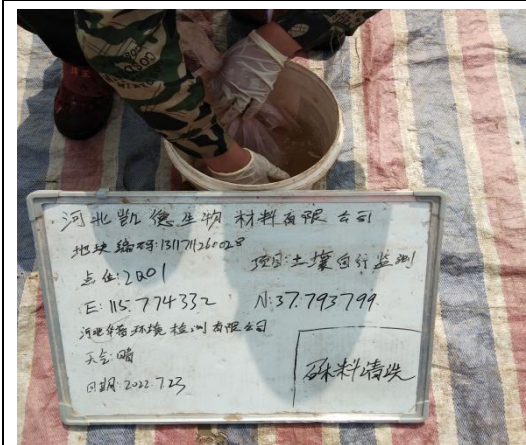 河北凯德生物材料有限公司
地块编号:1311711260028
项目:土壤自行监测
点位:2A01
E:115.774332
N:37.793799
河北华普环境检测有限公司
天气:晴
日期:2022.7.23
砾料清洗